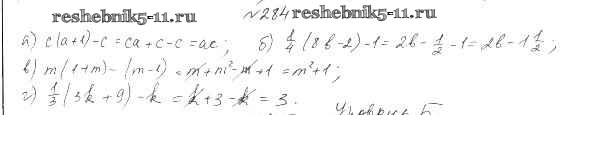 reshebnik5-11.ru №284 reshebnik5-11.ru
а) c(a+1)-c = ca+c-c = ac; б) 1/4 (8b-2)-1 = 2b-1/2-1 = 2b-1 1/2;
в) m(1+m)-(m-1) = m+m²-m+1 = m²+1;
г) 1/3(3k+9)-k = k+3-k = 3.